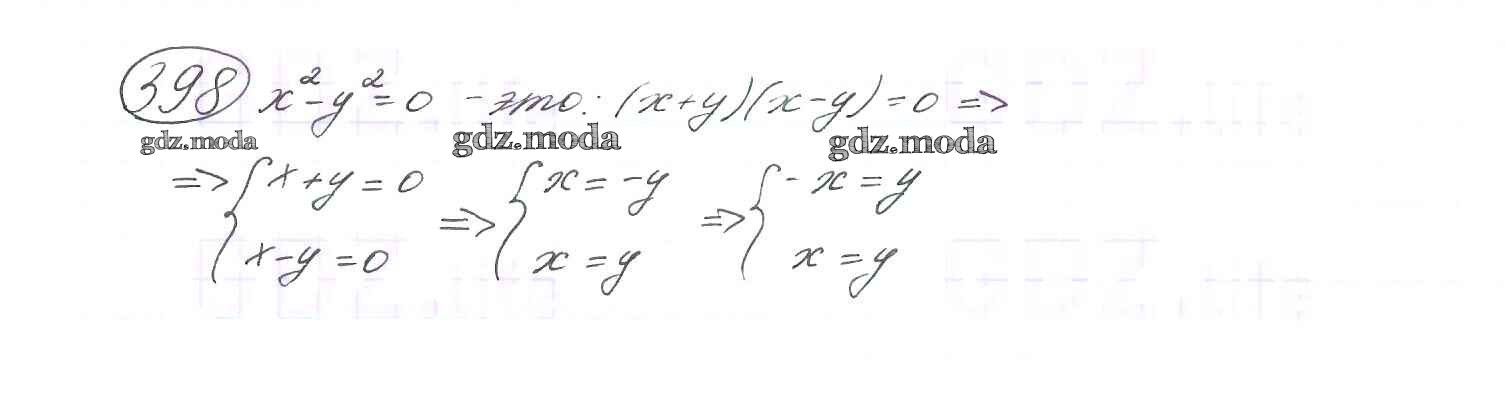 398 x² - y² = 0 - это: (x+y)(x-y) = 0 =>
gdz.moda gdz.moda gdz.moda
=> { x+y = 0 => { x = -y => { -x = y
x-y = 0 x = y x = y